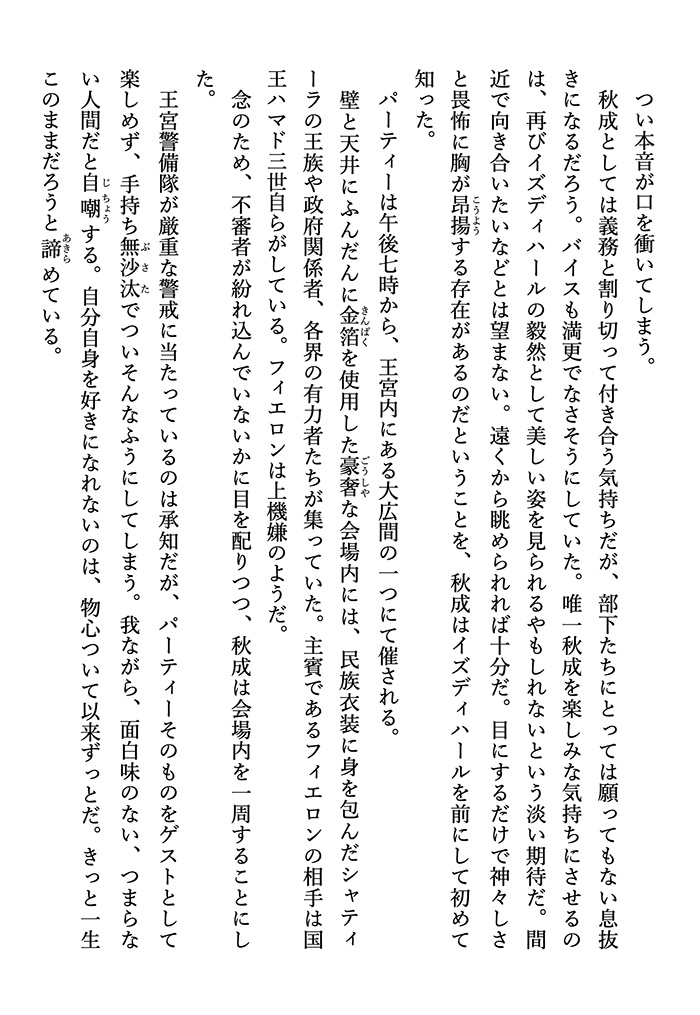 つい本音が口を衝いてしまう。
秋成としては義務と割り切って付き合う気持ちだが、部下たちにとっては願ってもない息抜
きになるだろう。バイスも満更でなさそうにしていた。唯一秋成を楽しみな気持ちにさせるの
は、再びイズディハールの毅然として美しい姿を見られるやもしれないという淡い期待だ。間
近で向き合いたいなどとは望まない。遠くから眺められれば十分だ。目にするだけで神々しさ
と畏怖に胸が昂揚する存在があるのだということを、秋成はイズディハールを前にして初めて
知った。
パーティーは午後七時から、王宮内にある大広間の一つにて催される。
壁と天井にふんだんに金箔を使用した豪奢な会場内には、民族衣装に身を包んだシャティ
ーラの王族や政府関係者、各界の有力者たちが集っていた。主賓であるフィエロンの相手は国
王ハマド三世自らがしている。フィエロンは上機嫌のようだ。
念のため、不審者が紛れ込んでいないかに目を配りつつ、秋成は会場内を一周することにし
た。
王宮警備隊が厳重な警戒に当たっているのは承知だが、パーティーそのものをゲストとして
楽しめず、手持ち無沙汰でついそんなふうにしてしまう。我ながら、面白味のない、つまらな
い人間だと自嘲する。自分自身を好きになれないのは、物心ついて以来ずっとだ。きっと一生
このままだろうと諦めている。